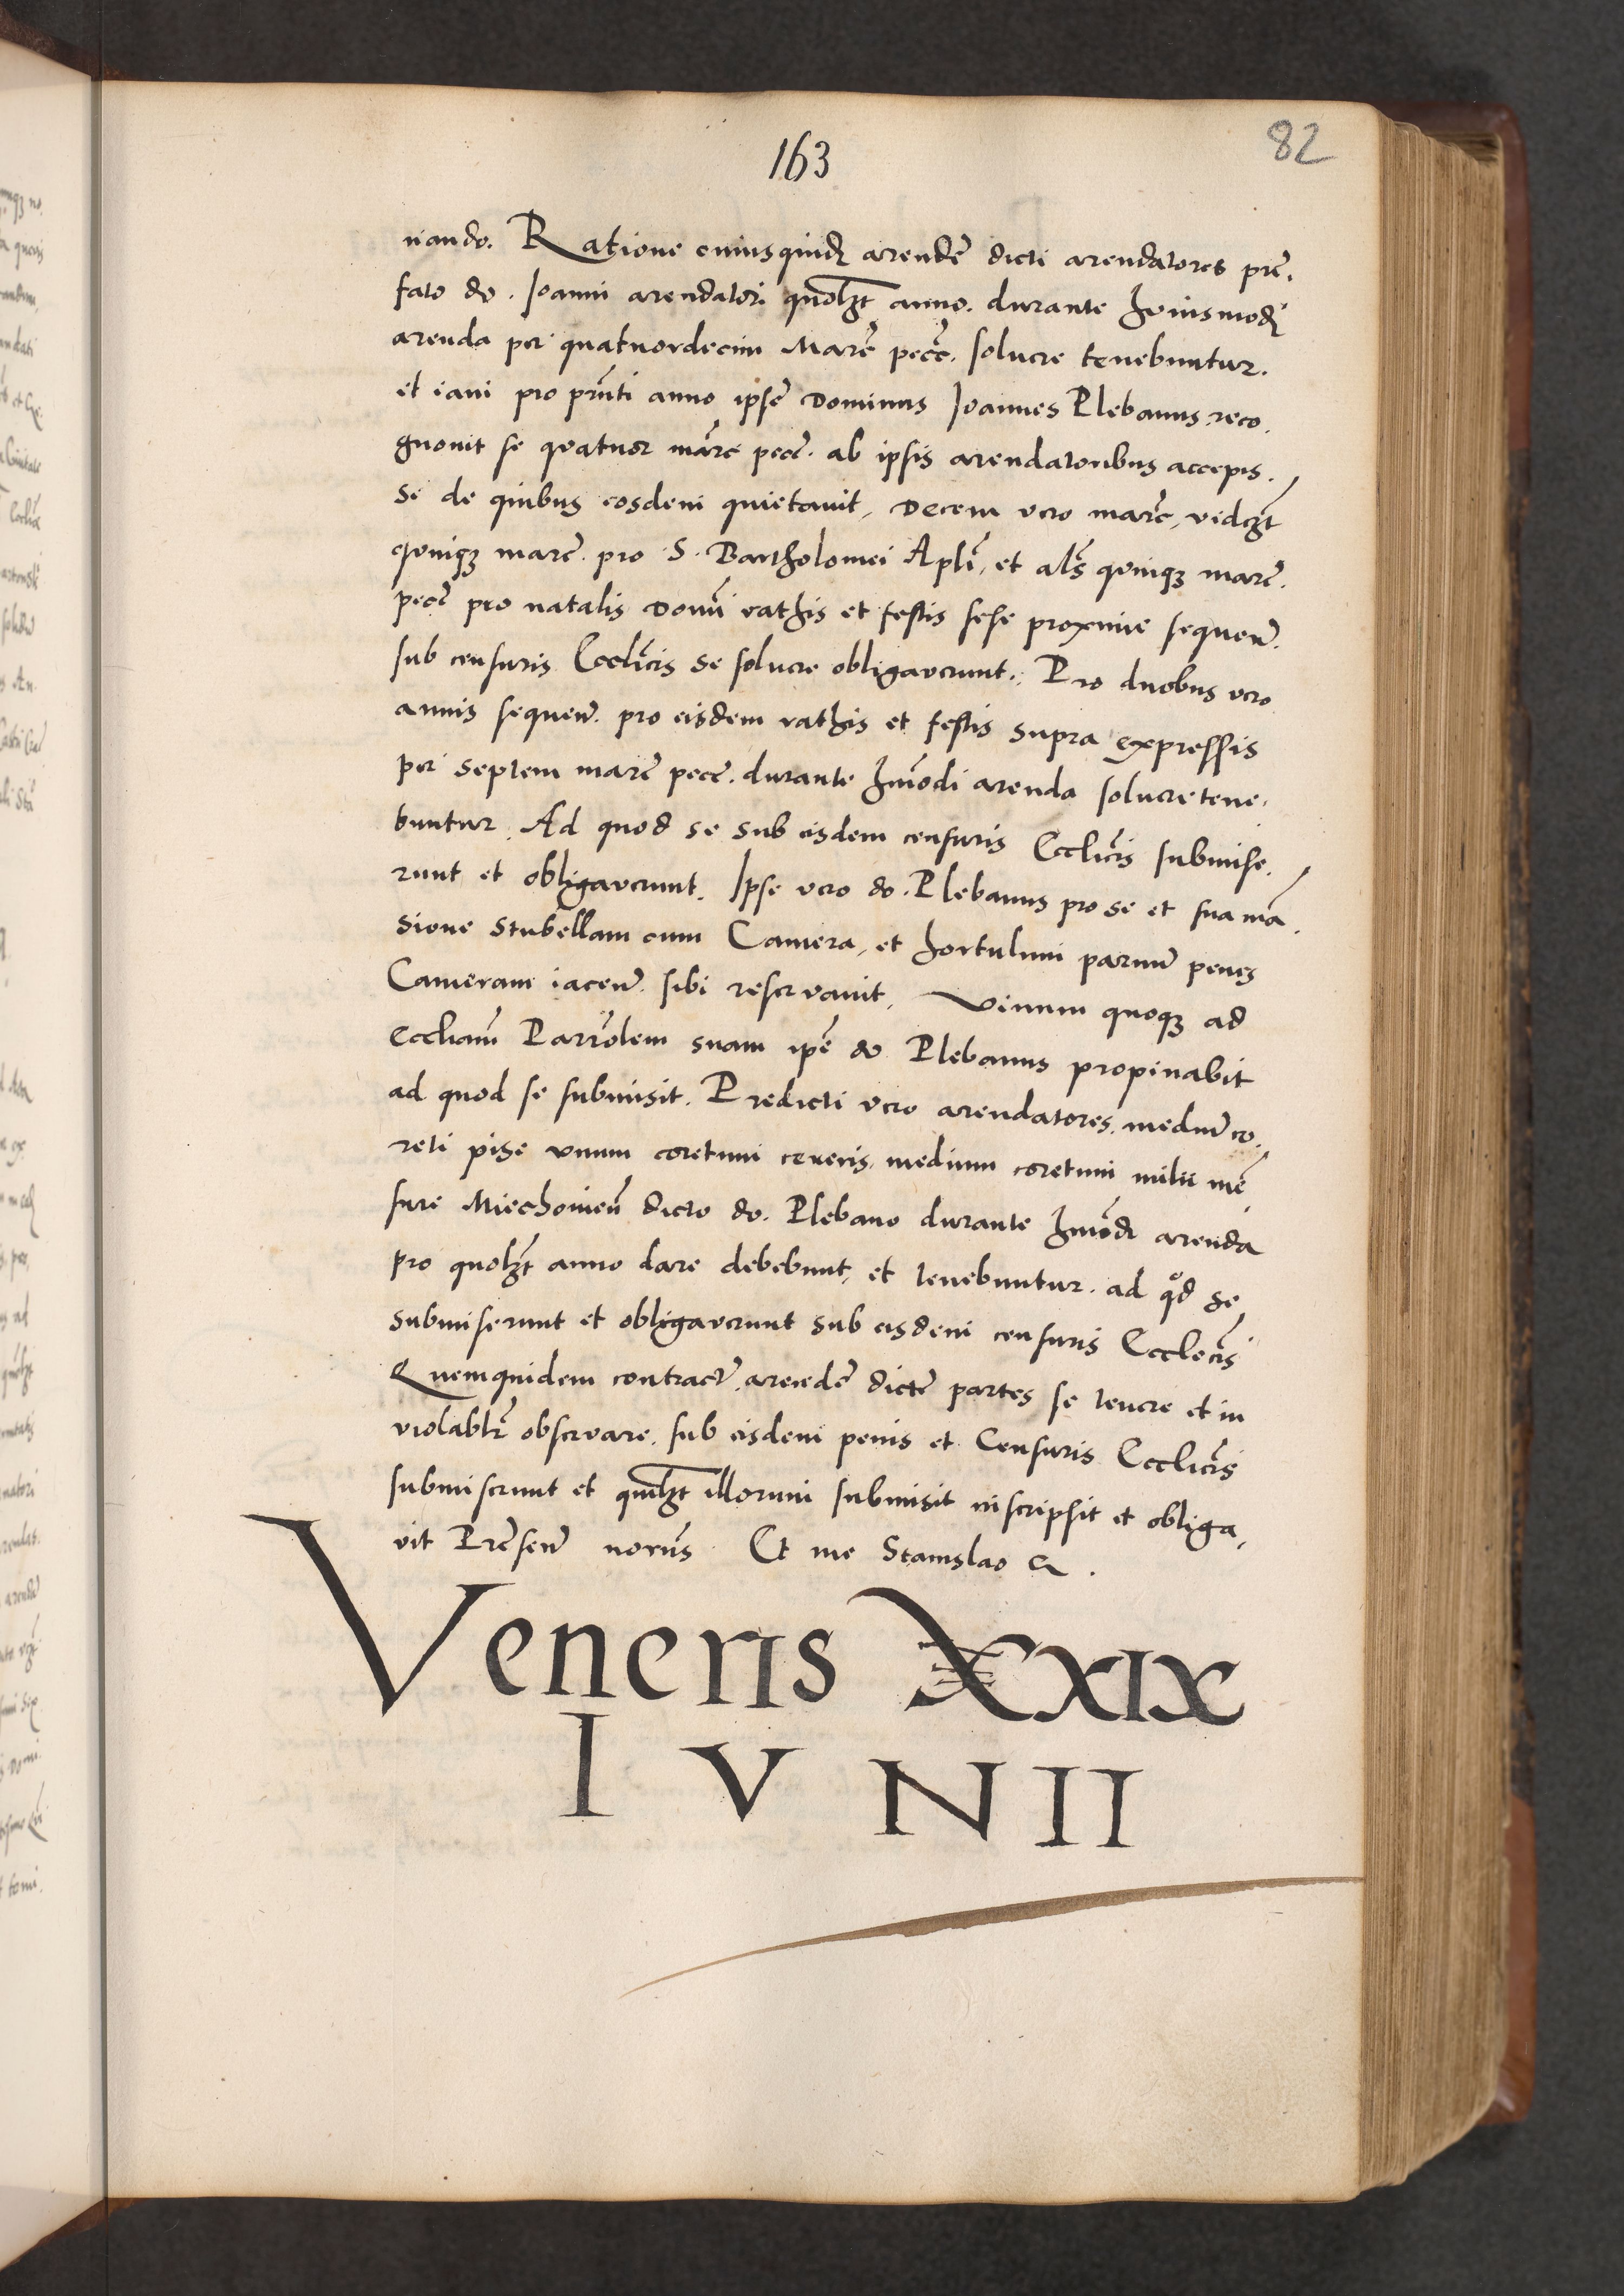 163
82
nando. Ratione cuiusquidē arendē dicti arendatores pre-
fato do. Joanni arendatori quolꝫt anno. durante huiusmodi
arenda per quatuordecim Marc̄ pecc̄. solvere tenebuntur.
et iam pro pn̄ti anno ipse Dominus Joannes Plebanus, reco-
gnovit se quatuor marc̄ pecc̄. ab ipsis arendatoribus accepis-
se de quibus eosdem quietavit, Decem vero marc̄, videlꝫt
quinqꝫ marc̄. pro S. Bartholomei Apli, et als̄ quinqꝫ marc̄.
pecc̄ pro natalis Domi rathis et festis sese proxime sequen̄.
sub censuris Ecclīcis se solvere obligaverunt. Pro duobus vero
annis sequen̄. pro eisdem rathis et festis supra expressis
per septem marc̄ pecc̄. durante hmōdi arenda solvere tene-
buntur. Ad quod se sub eisdem censuris Ecclīcis submise-
runt et obligaverunt. Ipse vero do. Plebanus pro se et sua mā-
sione stubellam cum Camera, et hortulum parvum̄ penes
Cameram iacen̄. sibi reservavit, Vinum quoqꝫ ad
Eccliam̄ Parrōlem suam ipse do Plebanus propinabit
ad quod se submisit. Predicti vero arendatores, mediū co-
reti pise unum coretum ceveris, medium coretum milii mē-
sure Miechovien̄ dicto do. Plebano durante hmōdi arenda
pro quolꝫt anno dare debebunt, et tenebuntur. ad qod se
submiserunt et obligaverunt sub eisdem censuris Ecclecīs
Quemquidem contractū arendē dictē partes se tenere et in
violablr̄ observare. sub eisdem penis et Censuris Ecclīcis
submiserunt et quilꝫt illorum submisit inscripsit et obliga-
vit Presen̄ norus̄ Et me Stanislao &.
Veneris XXIX
IVNII